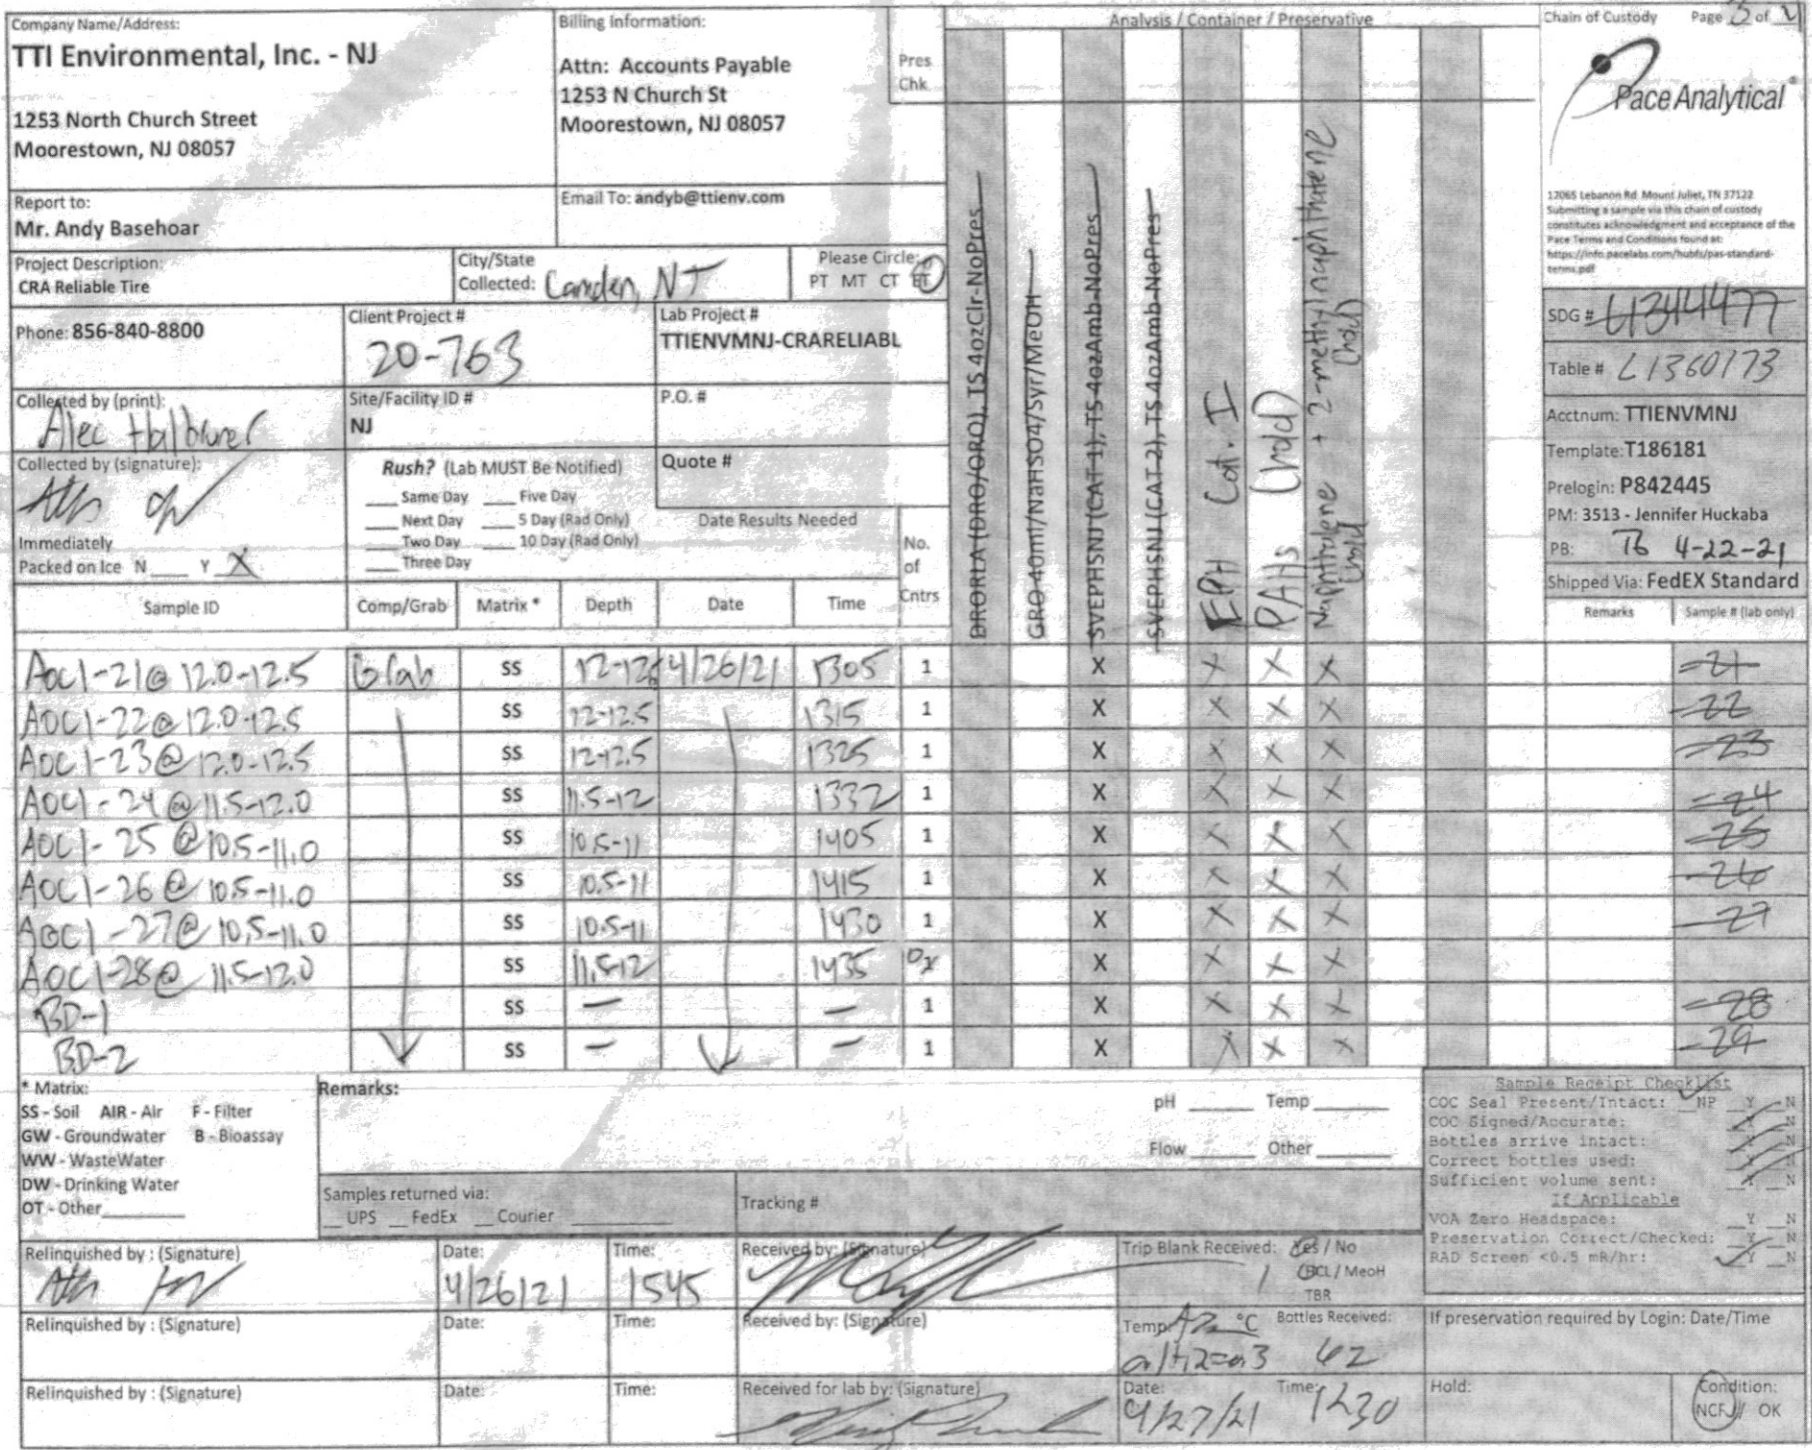 Company Name/Address:
TTI Environmental, Inc. - NJ
1253 North Church Street
Moorestown, NJ 08057
Billing Information:
Attn: Accounts Payable
1253 N Church St
Moorestown, NJ 08057
Pres
Chk
Analysis / Container / Preservative
Chain of Custody Page of
Pace Analytical®
12065 Lebanon Rd Mount Juliet, TN 37122
Submitting a sample via this chain of custody
constitutes acknowledgment and acceptance of the
Pace Terms and Conditions found at:
https://info.pacelabs.com/hubfs/pas-standard-
terms.pdf
Report to:
Mr. Andy Basehoar
Email To: andyb@ttienv.com
Project Description:
CRA Reliable Tire
City/State
Collected: Camden, NJ
Please Circle:
PT MT CT ET
Phone: 856-840-8800
Client Project #
20-763
Lab Project #
TTIENVMNJ-CRARELIABL
Collected by (print):
Alec
Site/Facility ID #
NJ
P.O. #
Collected by (signature):
Rush? (Lab MUST Be Notified)
___ Same Day ___ Five Day
___ Next Day ___ 5 Day (Rad Only)
___ Two Day ___ 10 Day (Rad Only)
___ Three Day
Quote #
Date Results Needed
Immediately
Packed on Ice N ___ Y X
No.
of
Cntrs
DRORLA (DRO/ORO), TS 4ozClr-NoPres
GRO 40ml/NaHSO4/Syr/MeOH
SVEPHSNJ (CAT 1), TS 4ozAmb-NoPres
SVEPHSNJ (CAT 2), TS 4ozAmb-NoPres
EPH Cat. I
PAHs (hold)
Naphthalene + 2-methylnaphthalene
(hold) (hold)
SDG # L1344477
Table # L1360173
Acctnum: TTIENVMNJ
Template: T186181
Prelogin: P842445
PM: 3513 - Jennifer Huckaba
PB: TB 4-22-21
Shipped Via: FedEX Standard
Sample ID Comp/Grab Matrix * Depth Date Time Remarks Sample # (lab only)
AOC1-21@ 12.0-12.5 Grab SS 12-12.5 4/26/21 1305 1 X X X X -21
AOC1-22@ 12.0-12.5 SS 12-12.5 1315 1 X X X X -22
AOC1-23@ 12.0-12.5 SS 12-12.5 1325 1 X X X X -23
AOC1-24@ 11.5-12.0 SS 11.5-12 1332 1 X X X X -24
AOC1-25 @10.5-11.0 SS 10.5-11 1405 1 X X X X -25
AOC1-26@ 10.5-11.0 SS 10.5-11 1415 1 X X X X -26
AOC1-27@ 10.5-11.0 SS 10.5-11 1430 1 X X X X -27
AOC1-28@ 11.5-12.0 SS 11.5-12 1435 0 X X X X
BD-1 SS — — 1 X X X X -28
BD-2 SS — — 1 X X X X -29
* Matrix:
SS - Soil AIR - Air F - Filter
GW - Groundwater B - Bioassay
WW - WasteWater
DW - Drinking Water
OT - Other
Remarks:
pH ______ Temp ______
Flow ______ Other ______
Samples returned via:
__ UPS __ FedEx __ Courier
Tracking #
Sample Receipt Checklist
COC Seal Present/Intact: _NP _Y _N
COC Signed/Accurate: _Y _N
Bottles arrive intact: _Y _N
Correct bottles used: _Y _N
Sufficient volume sent: _Y _N
If Applicable
VOA Zero Headspace: _Y _N
Preservation Correct/Checked: _Y _N
RAD Screen <0.5 mR/hr: _Y _N
Relinquished by : (Signature) Date: 4/26/21 Time: 1545 Received by: (Signature)
Trip Blank Received: Yes / No
1 HCL / MeoH
TBR
Relinquished by : (Signature) Date: Time: Received by: (Signature)
Temp: °C Bottles Received:
62
If preservation required by Login: Date/Time
Relinquished by : (Signature) Date: Time: Received for lab by: (Signature)
Date: 4/27/21 Time: 1230
Hold:
Condition:
NCF / OK